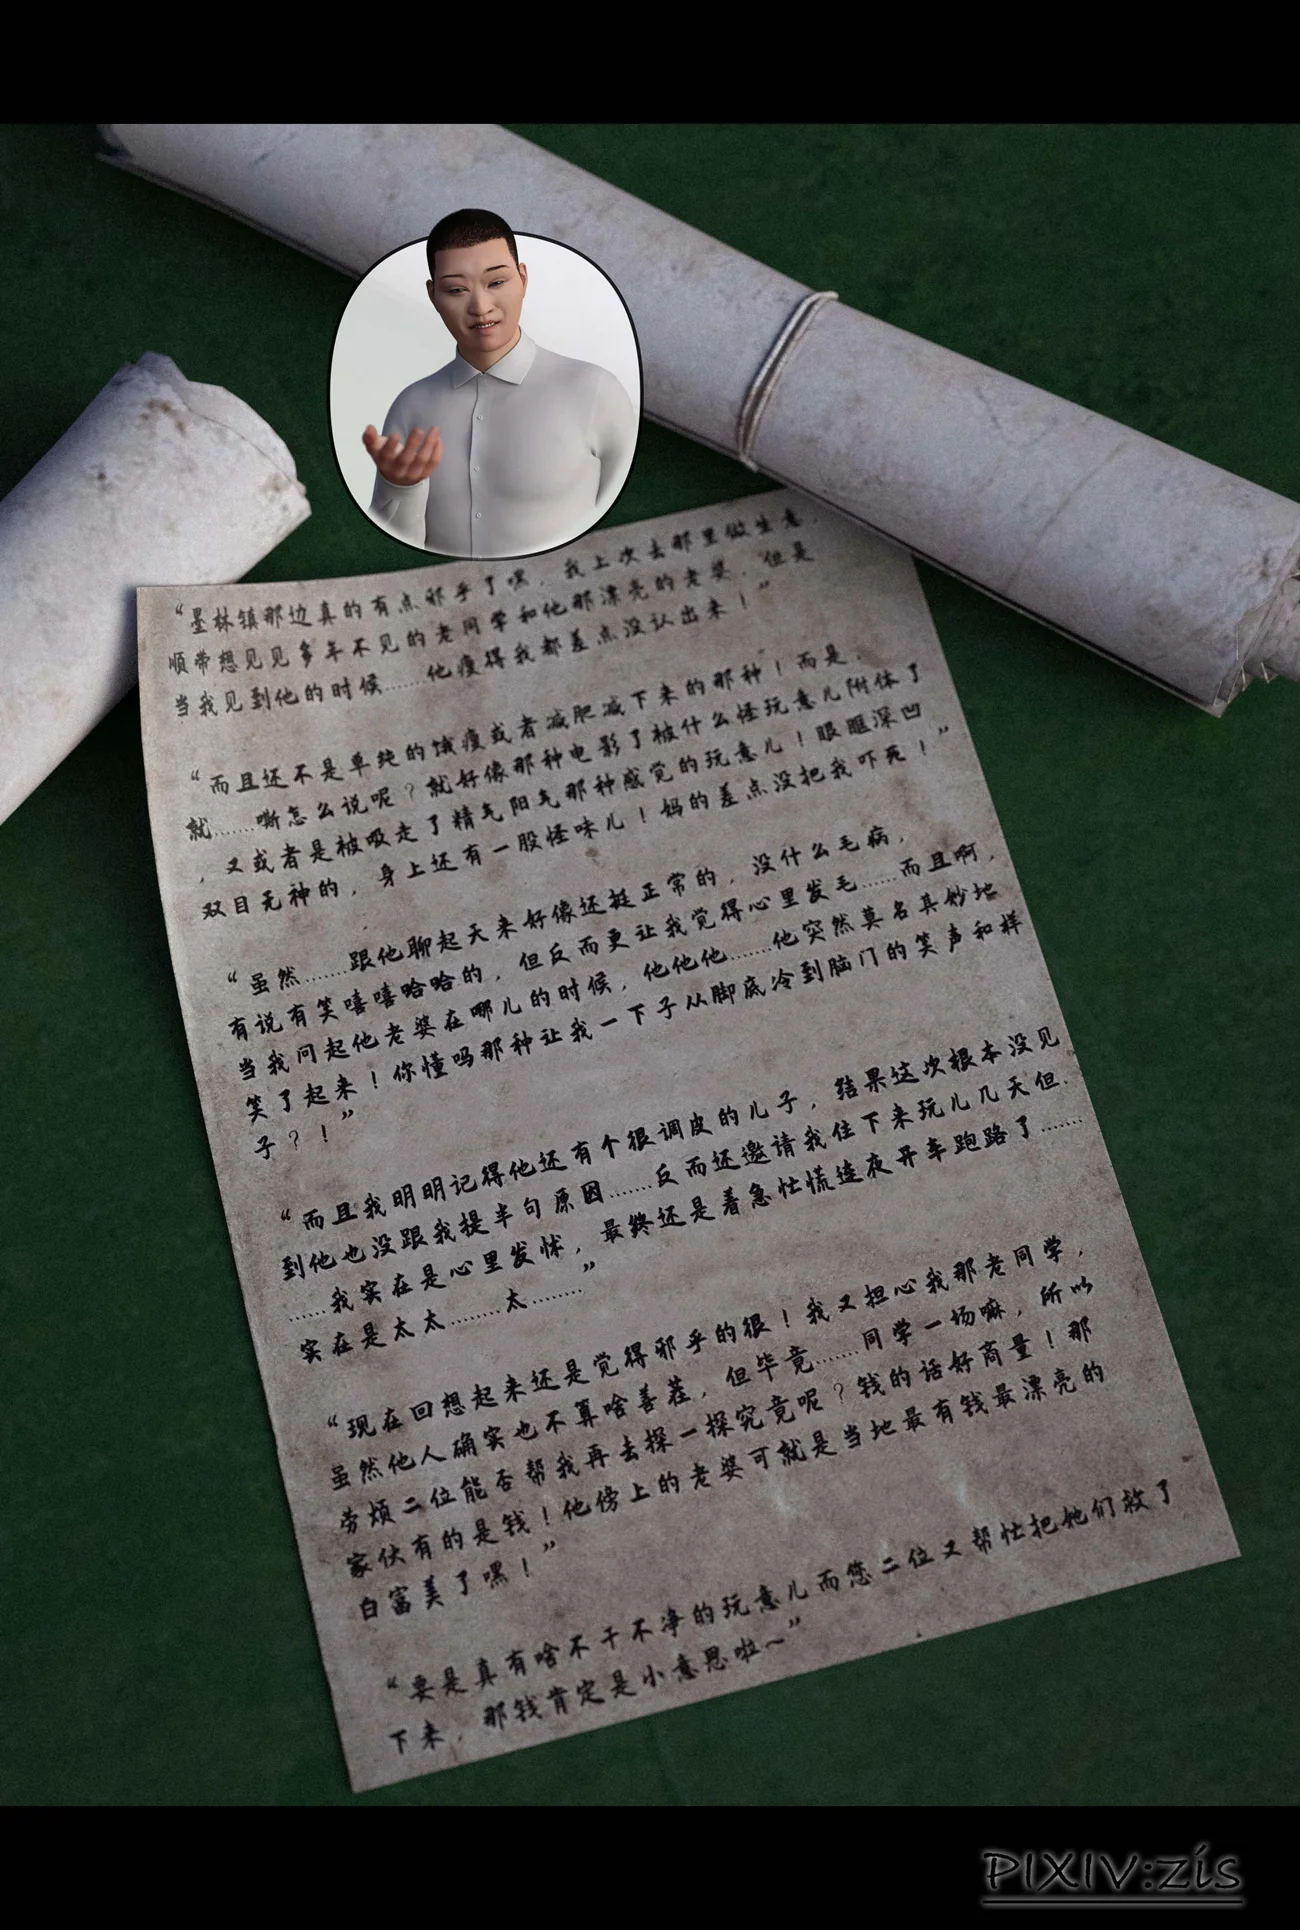 “墨林镇那边真的有点邪乎了嘿，我上次去那里做生意，
顺带想见见多年不见的老同学和他那漂亮的老婆，但是
当我见到他的时候……他瘦得我都差点没认出来！”
“而且还不是单纯的饿瘦或者减肥减下来的那种！而是，
就……嘶怎么说呢？就好像那种电影了被什么怪玩意儿附体了
，又或者是被吸走了精气阳气那种感觉的玩意儿！眼眶深凹
双目无神的，身上还有一股怪味儿！妈的差点没把我吓死！”
“虽然……跟他聊起天来好像还挺正常的，没什么毛病，
有说有笑嘻嘻哈哈的，但反而更让我觉得心里发毛……而且啊，
当我问起他老婆在哪儿的时候，他他他……他突然莫名其妙地
笑了起来！你懂吗那种让我一下子从脚底冷到脑门的笑声和样
子？！”
“而且我明明记得他还有个很调皮的儿子，结果这次根本没见
到他也没跟我提半句原因……反而还邀请我住下来玩儿几天但，
……我实在是心里发怵，最终还是着急忙慌连夜开车跑路了……
实在是太太……太……”
“现在回想起来还是觉得邪乎的很！我又担心我那老同学，
虽然他人确实也不算啥善茬，但毕竟……同学一场嘛，所以
劳烦二位能否帮我再去探一探究竟呢？钱的话好商量！那
家伙有的是钱！他傍上的老婆可就是当地最有钱最漂亮的
白富美了嘿！”
“要是真有啥不干不净的玩意儿而您二位又帮忙把她们救了
下来，那钱肯定是小意思啦～”
PIXIV:zis